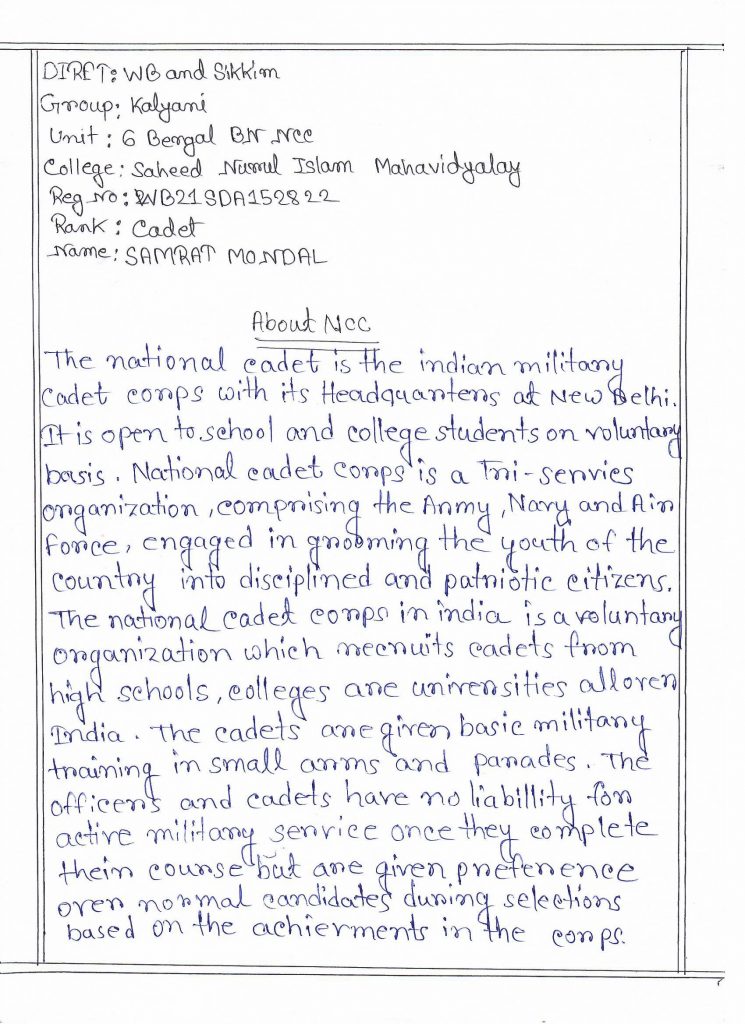 DIRET: WB and Sikkim
Group: Kalyani
Unit: 6 Bengal BN NCC
College: Saheed Nurul Islam Mahavidyalay
Reg No: WB21SDA152822
Rank: Cadet
Name: SAMRAT MONDAL
About NCC
The national cadet is the indian military
Cadet corps with its Headquarters at New Delhi.
It is open to school and college students on voluntary
basis. National cadet corps is a Tri-servies
organization, comprising the Army, Navy and Air
Force, engaged in grooming the youth of the
country into disciplined and patriotic citizens.
The national cadet corps in india is a voluntary
organization which recruits cadets from
high schools, colleges are universities all over
India. The cadets are given basic military
training in small arms and parades. The
officers and cadets have no liabillity for
active military service once they complete
their course but are given preference
over normal candidates during selections
based on the achierments in the corps.